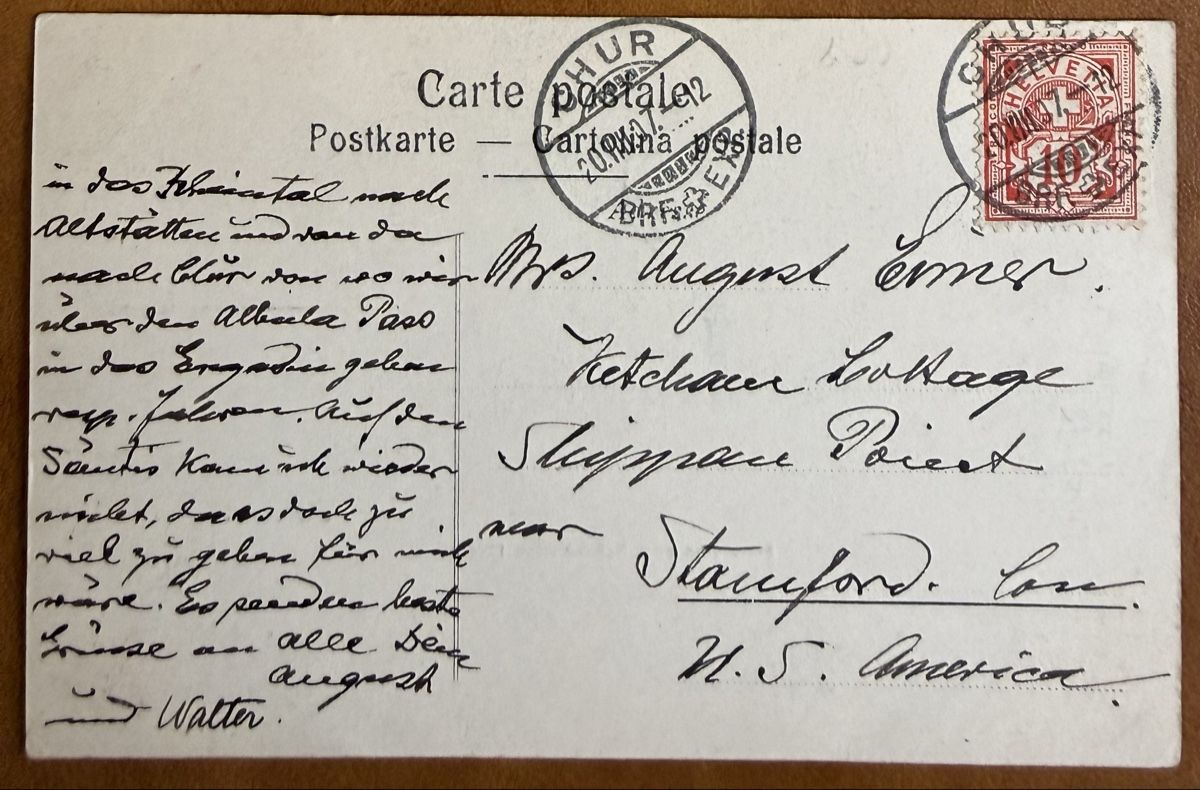 Carte postale
Postkarte — Cartolina postale
CHUR
20.VIII.07.-12
BRF.
HELVETIA
10
CHUR
20.VIII.07.-12
BRF.
in das Rheintal nach
Altstätten und von da
nach Chur von wo wir
über den Albula Pass
in das Engadin gehen
resp. fahren. Auf den
Säntis kann ich wieder
nicht, da es doch zu
viel zu gehen für mich
wäre. Es senden beste
Grüsse an alle Dein
August
und Walter.
Mrs. August
Ketcham Cottage
Shippan Point
near
Stamford. Con.
U. S. America